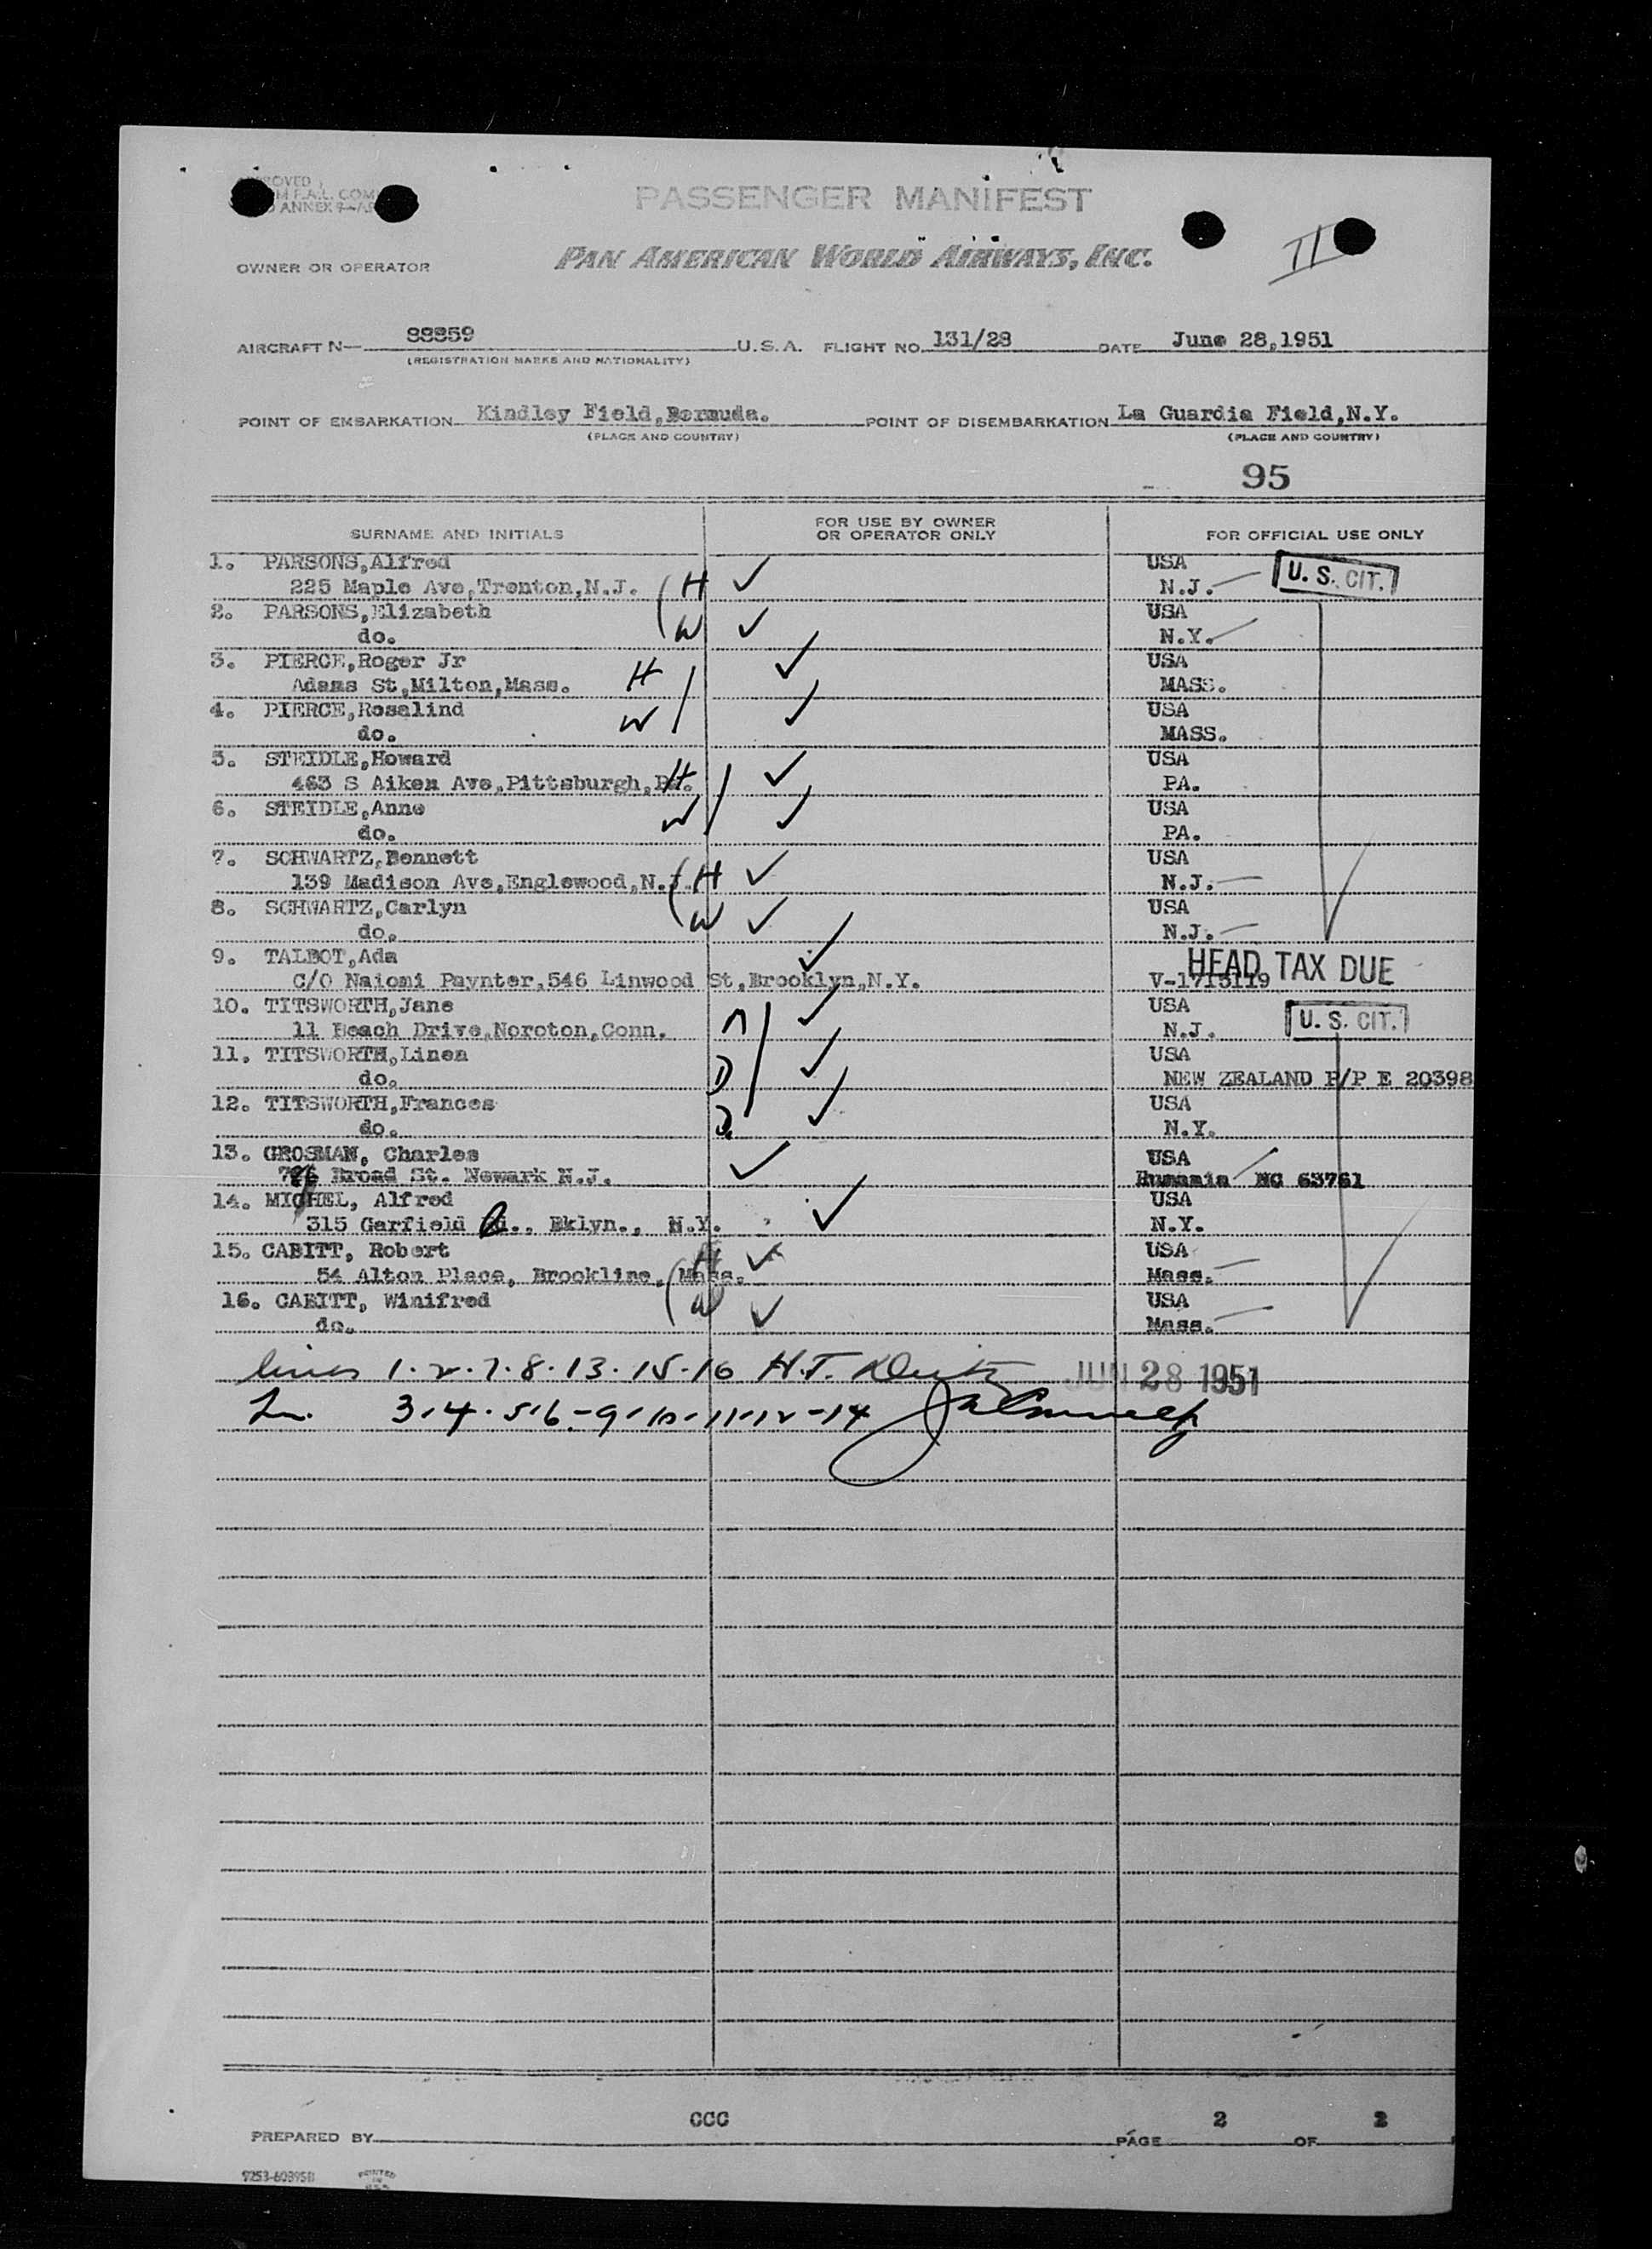 PASSENGER MANIFEST
PAN AMERICAN WORLD AIRWAYS, INC.
II
OWNER OR OPERATOR
AIRCRAFT N— 88859 U.S.A. FLIGHT NO. 131/28 DATE June 28,1951
(REGISTRATION MARKS AND NATIONALITY)
POINT OF EMBARKATION Kindley Field,Bermuda. POINT OF DISEMBARKATION La Guardia Field,N.Y.
(PLACE AND COUNTRY) (PLACE AND COUNTRY)
95
SURNAME AND INITIALS FOR USE BY OWNER OR OPERATOR ONLY FOR OFFICIAL USE ONLY
1. PARSONS,Alfred USA
225 Maple Ave,Trenton,N.J. H ✓ N.J. U. S. CIT.
2. PARSONS,Elizabeth USA
do. W ✓ N.Y.
3. PIERCE,Roger Jr ✓ USA
Adams St,Milton,Mass. H MASS.
4. PIERCE,Rosalind W ✓ USA
do. MASS.
5. STEIDLE,Howard ✓ USA
463 S Aiken Ave,Pittsburgh,Pa. H PA.
6. STEIDLE,Anne W ✓ USA
do. PA.
7. SCHWARTZ,Bennett USA
139 Madison Ave,Englewood,N.J. H ✓ N.J.
8. SCHWARTZ,Carlyn W ✓ USA
do. N.J.
9. TALBOT,Ada ✓ HEAD TAX DUE
C/O Naiomi Paynter,546 Linwood St,Brooklyn,N.Y. V-1715119
10. TITSWORTH,Jane ✓ USA
11 Beach Drive,Noroton,Conn. M N.J. U. S. CIT.
11. TITSWORTH,Linea ✓ USA
do. D NEW ZEALAND P/P E 20398
12. TITSWORTH,Frances ✓ USA
do. D. N.Y.
13. GROSMAN, Charles ✓ USA
Broad St. Newark N.J. Rumania NC 63761
14. MICHEL, Alfred ✓ USA
315 Garfield Bklyn., N.Y. N.Y.
15. CABITT, Robert H ✓ USA
54 Alton Place, Brookline, Mass. Mass.
16. CABITT, Winifred W ✓ USA
do. Mass.
lines 1·2·7·8·13·15·16 H.T. JUN 28 1951
Ln. 3·4·5·6-9-10-11-12-14
CCC 2 2
PREPARED BY PAGE OF
9253-60895B PRINTED IN U.S.A.